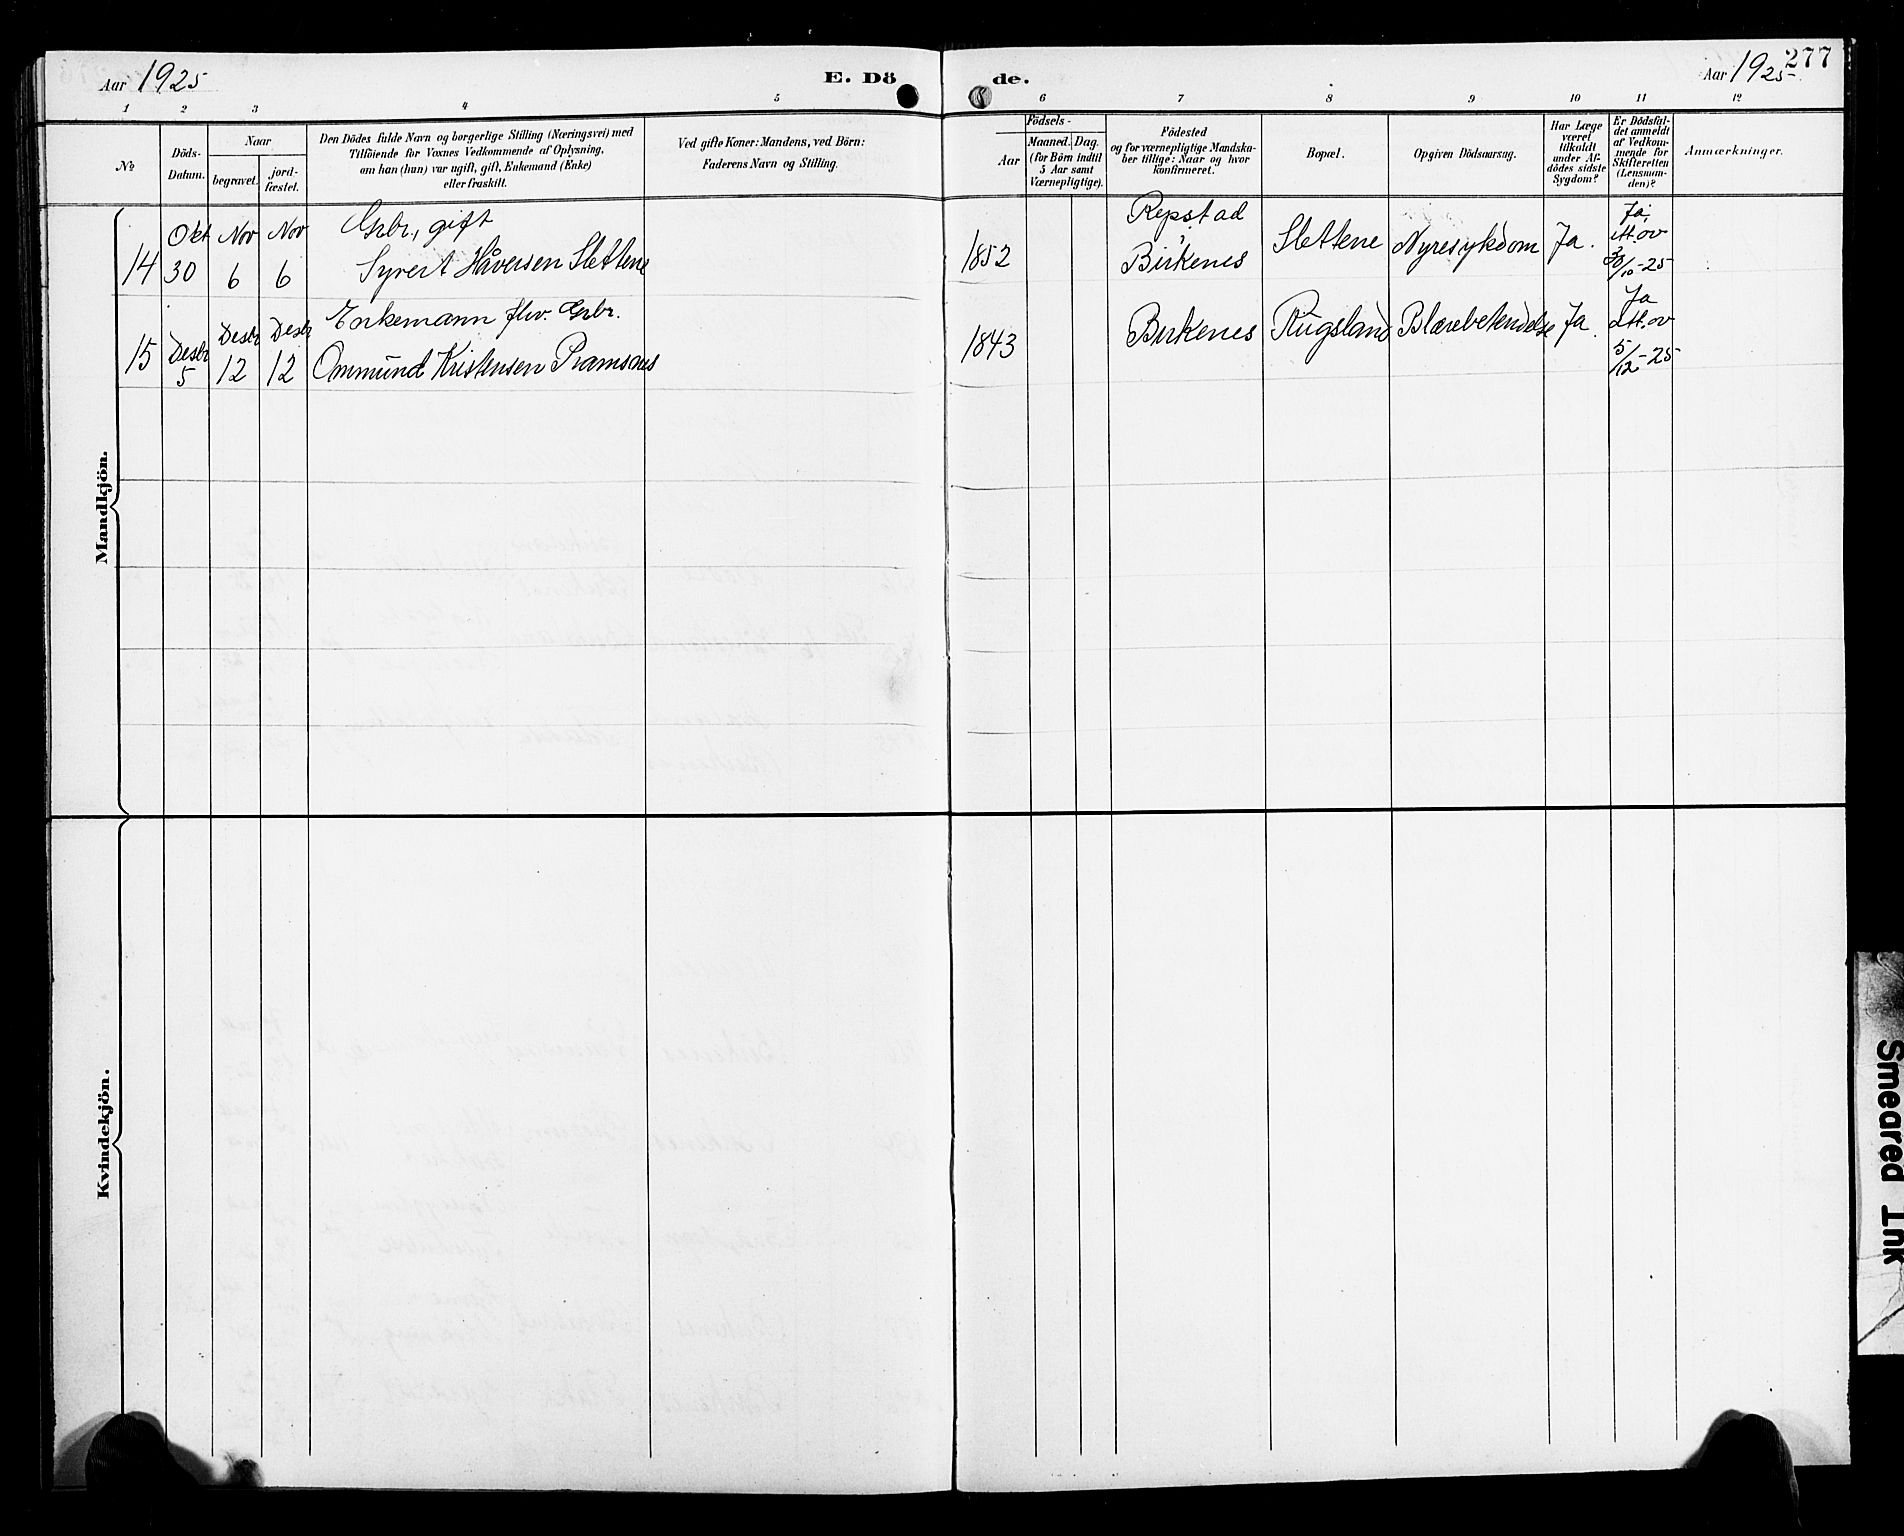 Aar 1925
E. Dö
de.
Aar 1925
277
1 2 3 4 5 6 7 8 9 10 11 12
No
Döds-
Datum.
Naar
begravet.
jord-
fæstet.
Den Dödes fulde Navn og borgerlige Stilling (Næringsvei) med
Tilföiende for Voxnes Vedkommende af Oplysning,
om han (hun) var ugift, gift, Enkemand (Enke)
eller fraskilt.
Ved gifte Koner: Mandens, ved Börn:
Faderens Navn og Stilling.
Födsels-
Aar
Maaned. Dag.
(for Börn indtil
5 Aar samt
Værnepligtige).
Födested
og for værnepligtige Mandska-
ber tillige: Naar og hvor
konfirmeret.
Bopæl.
Opgiven Dödsaarsag.
Har Læge
været
tilkaldt
under Af-
dödes sidste
Sygdom?
Er Dödsfal-
det anmeldt
af Vedkom-
mende for
Skifteretten
(Lensman-
den)?
Anmærkninger.
Mandkjön.
Okt Nov Nov Grbr., gift Repstad Ja
14 30 6 6 Syvert Håversen Slettene 1852 Birkenes Slettene Nyresykdom Ja. att. av
30/10-25
Desbr Desbr Enkemann fhv. Grbr. Ja
15 Desbr 12 12 Ommund Kristensen Pramsnes 1843 Birkenes Rugsland Blærebetendelse Ja. att. av
5
5/12-25
Kvindekjön.
Smeared Ink